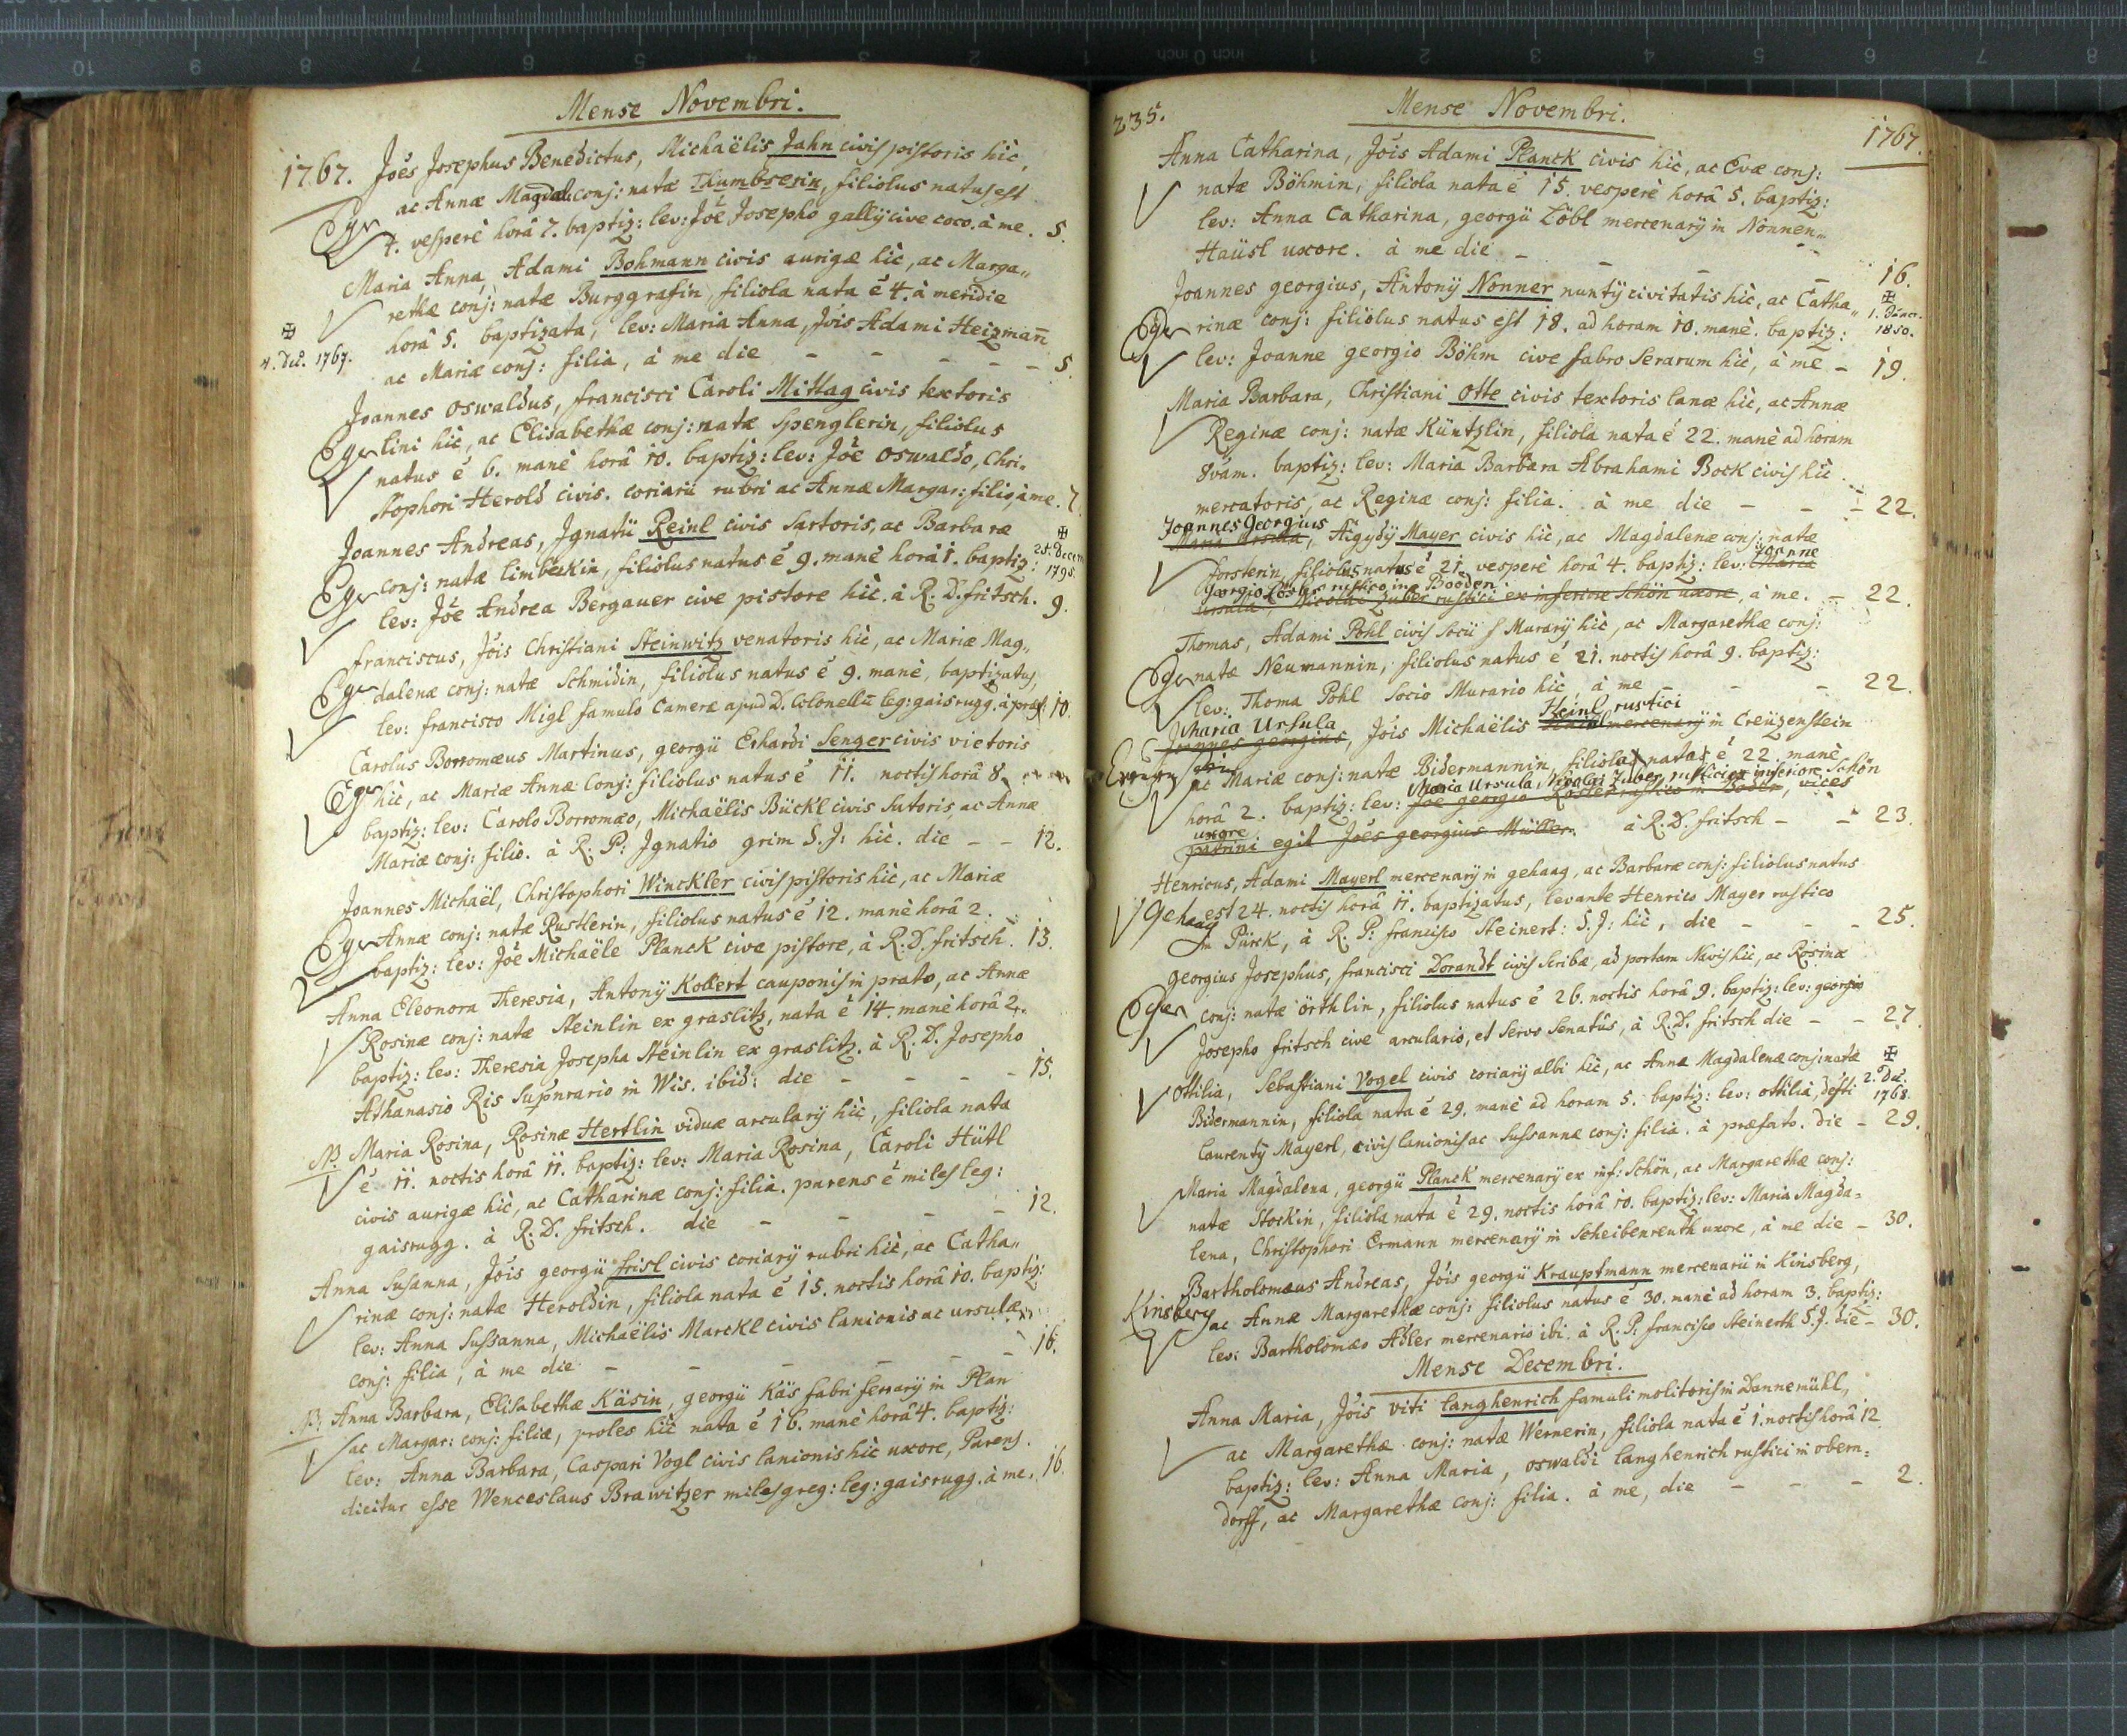 Mense Novembri.
1767. Joês Josephus Benedictus, Michaëlis Jahn civis pistoris hìc,
ac Annæ Magdal: conj: natæ Thumbserin, filiolus natus est
Eger 4. vesperè horâ 7. baptiz: lev: Jôe Josepho gallÿ cive coco. à me. 5.
Maria Anna, Adami Bohmann civis aurigæ hìc, ac Marga„
rethæ conj: natæ Burggrafin, filiola nata ê 4. à meridie
✠ horâ 5. baptizata, lev: Maria Anna, Jôis Adami Heizmañ
4. Dec. 1767. ac Mariæ conj: filia, à me die – – – – 5.
Joannes Oswaldus, francisci Caroli Mittag civis textoris
Eger lini hìc, ac Elisabethæ conj: natæ Spenglerin, filiolus
natus ê 6. manè horâ 10. baptiz: lev: Jôe Oswaldo, Chri„
stophori Herold civis. coriarii rubri ac Annæ Margar: filio, à me. 7.
Joannes Andreas, Ignatii Reinl civis sartoris, ac Barbaræ ✠
Eger conj: natæ Limbeckin, filiolus natus ê 9. manè horâ 1. baptiz: 25. Decem 1795.
lev: Jôe Andrea Bergauer cive pistore hìc. à R. D. fritsch. 9.
franciscus, Jôis Christiani Steinwitz venatoris hìc, ac Mariæ Mag„
Eger dalenæ conj: natæ Schmidin, filiolus natus ê 9. manè, baptizatus,
lev: francisco Migl famulo Cameræ apud D. Colonellũ leg: gaisrugg. à præf: 10.
Carolus Borromæus Martinus, georgii Erhardi Senger civis vietoris
Eger hìc, ac Mariæ Annæ Conj: filiolus natus ê 11. noctis horâ 8.
baptiz: lev: Carolo Borromæo, Michaëlis Bückl civis sutoris, ac Annæ
Mariæ conj: filio. à R. P: Ignatio grim S. J: hìc. die – – 12.
Joannes Michaël, Christophori Winckler civis pistoris hìc, ac Mariæ
Eger Annæ conj: natæ Rustlerin, filiolus natus ê 12. manè horâ 2.
baptiz: lev: Jôe Michaële Planck cive pistore, à R. D. fritsch. 13.
Anna Eleonora Theresia, Antonÿ Kollert cauponis in prato, ac Annæ
Rosinæ conj: natæ Steinlin ex graslitz, nata ê 14. manè horâ 2.
baptiz: lev: Theresia Josepha Steinlin ex graslitz. à R. D. Josepho
Athanasio Ris Supnrario in Wis. ibid: die – – – – 15.
NB. Maria Rosina, Rosinæ Hertlin viduæ arcularÿ hìc, filiola nata
ê 11. noctis horâ 11. baptiz: lev: Maria Rosina, Caroli Hütl
civis aurigæ hìc, ac Catharinæ conj: filia. parens ê miles leg:
gaisrugg. à R. D. fritsch. die – – – – 12.
Anna Susanna, Jôis georgii frisl civis coriarÿ rubri hìc, ac Catha„
rinæ conj: natæ Heroldin, filiola nata ê 15. noctis horâ 10. baptiz:
lev: Anna Sussanna, Michaëlis Marckl civis lanionis ac ursulæ
conj: filia, à me die – – – – – – 16.
NB. Anna Barbara, Elisabethæ Käsin, georgii Käs fabri ferrarÿ in Plan
ac Margar: conj: filiæ, proles hìc nata ê 16. manè horâ 4. baptiz:
lev: Anna Barbara, Caspari Vogl civis lanionis hìc uxore, Parens
dicitur esse Wenceslaus Brawitzer miles greg: leg: gaisrugg. à me. 16.
235. Mense Novembri. 1767.
Anna Catharina, Jôis Adami Planck civis hìc, ac Evæ conj:
natæ Böhmin, filiola nata ê 15. vesperè horâ 5. baptiz:
lev: Anna Catharina, georgii Zöbl mercenarÿ in Nonnen„
Haüsl uxore. à me die – – – – 16.
Joannes georgius, Antonÿ Nonner nuntÿ civitatis hìc, ac Catha„ ✠
Eger rinæ conj: filiolus natus est 18. ad horam 10. manè. baptiz: 1. Jäner. 1850.
lev: Joanne georgio Böhm cive fabro serarum hìc, à me – 19.
Maria Barbara, Christiani Otte civis textoris lanæ hìc, ac Annæ
Reginæ conj: natæ Küntzlin, filiola nata ê 22. manè ad horam
8vam. baptiz: lev: Maria Barbara Abrahami Bock civis hìc
mercatoris, ac Reginæ conj: filia. à me die – – – 22.
Joannes Georgius
Maria Ursula, Ægydÿ Mayer civis hìc, ac Magdalenæ conj: natæ
forsterin, filiolus natus ê 21. vesperè horâ 4. baptiz: lev: Joanne Maria
Georgio Röhler rustico in Booden
ursula, Nicolai Zuber rustici ex inferiore Schön uxore, à me. – 22.
Thomas, Adami Pohl civis socii Murarÿ hìc, ac Margarethæ conj:
Eger natæ Neumannin, filiolus natus ê 21. noctis horâ 9. baptiz:
lev: Thoma Pohl Socio Murario hìc, à me – – – 22.
Maria Ursula Heinl rustici
Joannes georgius, Jôis Michaëlis mercenarÿ in Creüzenstein
ac Mariæ conj: natæ Bidermannin, filiola nata ê 22. manè
Maria Ursula, Nicolai Zuber rustici ex inferiore Schön
horâ 2. baptiz: lev: Jôe georgio Rösler rustico in Boden, vices
uxore
patrini egit Joês georgius Müller. à R. D. fritsch – – 23.
Henricus, Adami Mayerl mercenarÿ in gehaag, ac Barbaræ conj: filiolus natus
Gehaag est 24. noctis horâ 11. baptizatus, levante Henrico Mayer rustico
in Pürck, à R. P: francisco Steinert: S. J: hìc, die – – – 25.
georgius Josephus, francisci Dorandt civis scribæ, ad portam Navis hìc, ac Rosinæ
Eger conj: natæ Örthlin, filiolus natus ê 26. noctis horâ 9. baptiz: lev: georgio
Josepho fritsch cive arculario, et servo Senatûs, à R. D. fritsch die – – 27.
Ottilia, Sebastiani Vogel civis coriarÿ albi hìc, ac Annæ Magdalenæ conj: natæ ✠
Bidermannin, filiola nata ê 29. manè ad horam 5. baptiz: lev: ottilia, defti 2. Dec. 1768.
Laurentÿ Mayerl, civis lanionis ac Sussannæ conj: filia. à præfato. die – 29.
Maria Magdalena, georgii Planck mercenarÿ ex inf: Schön, ac Margarethæ conj:
natæ Stockin, filiola nata ê 29. noctis horâ 10. baptiz: lev: Maria Magda„
lena, Christophori Ermann mercenarÿ in Scheibenreuth uxore, à me die – 30.
Bartholomæus Andreas, Jôis georgii Krauptmann mercenarii in Kinsberg,
Kinsberg ac Annæ Margarethæ conj: filiolus natus ê 30. manè ad horam 3. baptiz:
lev: Bartholomæo Adler mercenario ibi. à R. P: francisco Steinerth S. J. die – 30.
Mense Decembri.
Anna Maria, Jôis viti Langhenrich famuli molitoris in Dannemühl,
ac Margarethæ conj: natæ Wernerin, filiola nata ê 1. noctis horâ 12
baptiz: lev: Anna Maria, oswaldi langhenrich rustici in obern„
dorff, ac Margarethæ conj: filia. à me, die – – – 2.